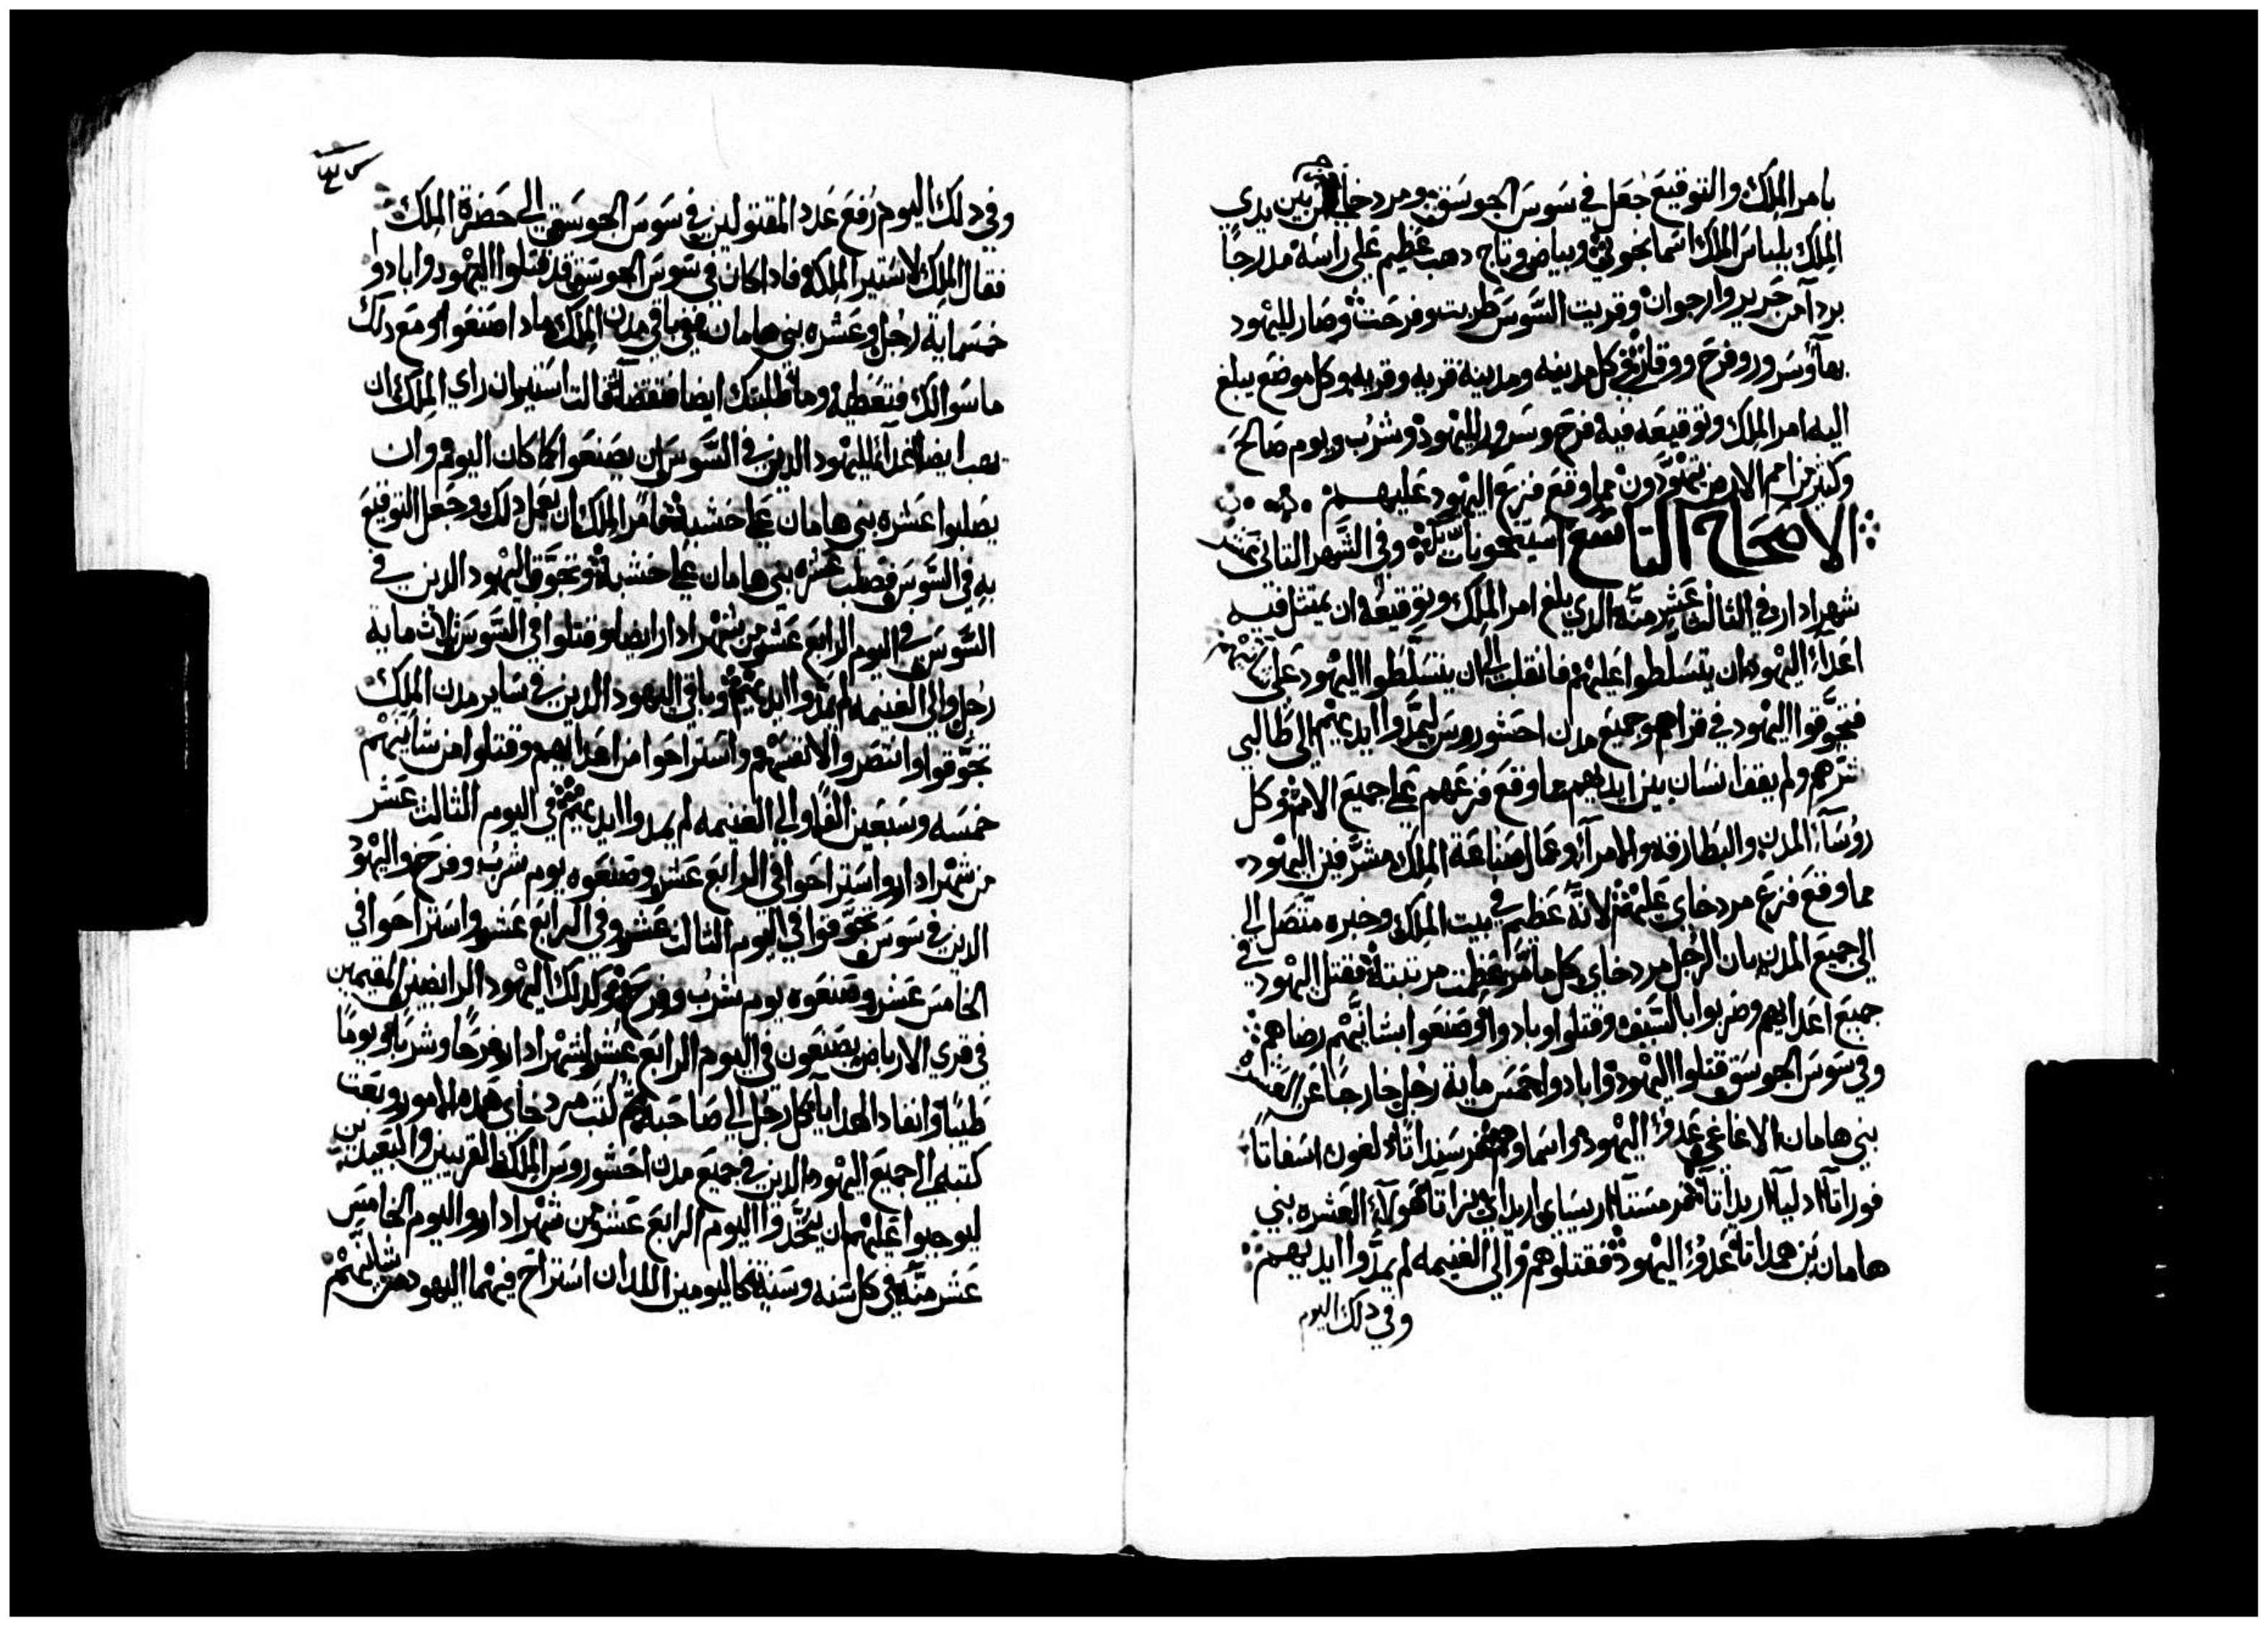 بامر الملك والتوقيع جعل في سوس الجوسق ومردخاي خرج من بين يدي
الملك بلباس الملك اسمانجوني وبياض وتاج دهب عظيم على راسه مدرجًا
بردآ من حرير وارجوان وقريت السوس طربت وفرحت وصار لليهود
بهآ وسرور وفرح ووقار في كل مدينه ومدينة قريه وقريه وكل موضع يبلغ
اليه امر الملك وتوقيعه فيه فرح وسرور لليهود وشرب ويوم صالح
وكثير من امم الارض يتهودون مما وقع فزع اليهود عليهم
الاصحاح التاسع وفي الشهر التاني عشر
شهر ادار في الثالث عشر منه الدي بلغ امر الملك وتوقيعه ان يمتثل فيه
اعدآء اليهود ان يتسلطوا عليهم فانقلب الى ان يتسلطوا اليهود على
فتجوقوا اليهود في قراهم وجميع مدن احشوروس ليمدوا ايديهم الى طالبي
شرهم ولم يقف انسان بين ايديهم مما وقع فزعهم على جميع الامم وكل
روسآء المدن والبطارقه والامرآء وعمال صناعة الملك مشرفين اليهود
مما وقع فزع مردخاي عليهم لانه عظيم في بيت الملك وخبره متصل الى
الى جميع المدن بان الرجل مردخاي كل ما مر عظمت مرتبته فقتل اليهود في
جميع اعدايهم وضربوا بالسيف وقتلوا وبادوا وصنعوا بشانيهم رضاهم
وفي سوس الجوسق قتلوا اليهود وابادوا خمس ماية رجل خارجا عن العشره
بني هامان الاغاغي عدو اليهود واسماوهم فرسنداتا دلفون اسفاتا
فوراتا ادليآ اريداتا فرمستآ اريساي اريداي يزاتا هولآء العشره بني
هامان بن همداتا عدو اليهود فقتلوهم والى الغنيمه لم يمدوا ايديهم
وفي دلك اليوم
وفي دلك اليوم رفع عدد المقتولين في سوس الجوسق الى حضرة الملك
فقال الملك لاستير الملكه فادا كان في سوس الجوسق قد قتلوا اليهود وابادوا
خمسماية رجل وعشره بني هامان ففي باقي مدن الملك مادا صنعوا ومع دلك
ما سوالك فتعطيه وما طلبتك ايضا فتقضا قالت استير ان راي الملك ان
يهب ايضا غدآ لليهود الدين في السوس ان يصنعوا كما كان اليوم وان
يصلبوا عشره بني هامان على خشبه فامر الملك ان يعمل دلك وجعل التوقيع
به في السوس فصلب عشره بني هامان على خشبه وتجوق اليهود الدين في
السوس في اليوم الرابع عشر من شهر ادار ايضا وقتلوا في السوس ثلاث ماية
رجل والى الغنيمه لم يمدوا ايديهم وباقي اليهود الدين في ساير مدن الملك
تجوقوا وانتصروا لانفسهم واستراحوا من اعدايهم وقتلوا من شانيهم
خمسه وسبعين الفا والى الغنيمه لم يمدوا ايديهم في اليوم الثالث عشر
من شهر ادار واستراحوا في الرابع عشر وصنعوه يوم شرب وفرح واليهود
الدين في سوس تجوقوا في اليوم الثالث عشر وفي الرابع عشر واستراحوا في
الخامس عشر وصنعوه يوم شرب وفرح وكدلك اليهود الرابضين المقيمين
في قري الارباض يصنعون في اليوم الرابع عشر لشهر ادار فرحا وشربا ويوما
طيبا وانفاد الهدايا كل رجل الى صاحبه ثم كتب مردخاي هده الامور وبعث
كتبه الى جميع اليهود الدين في جميع مدن احشوروس الملك القريبين والبعيدين
ليوجبوا عليهم ان يتخدوا اليوم الرابع عشر من شهر ادار واليوم الخامس
عشر منه في كل سنه وسنة كاليومين اللدان استراح فيهما اليهود من شانيهم